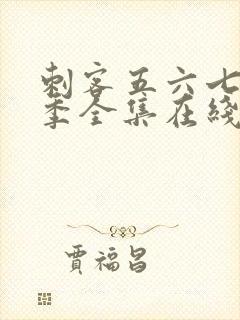 刺客五六七
季全集在綫
賈福昌